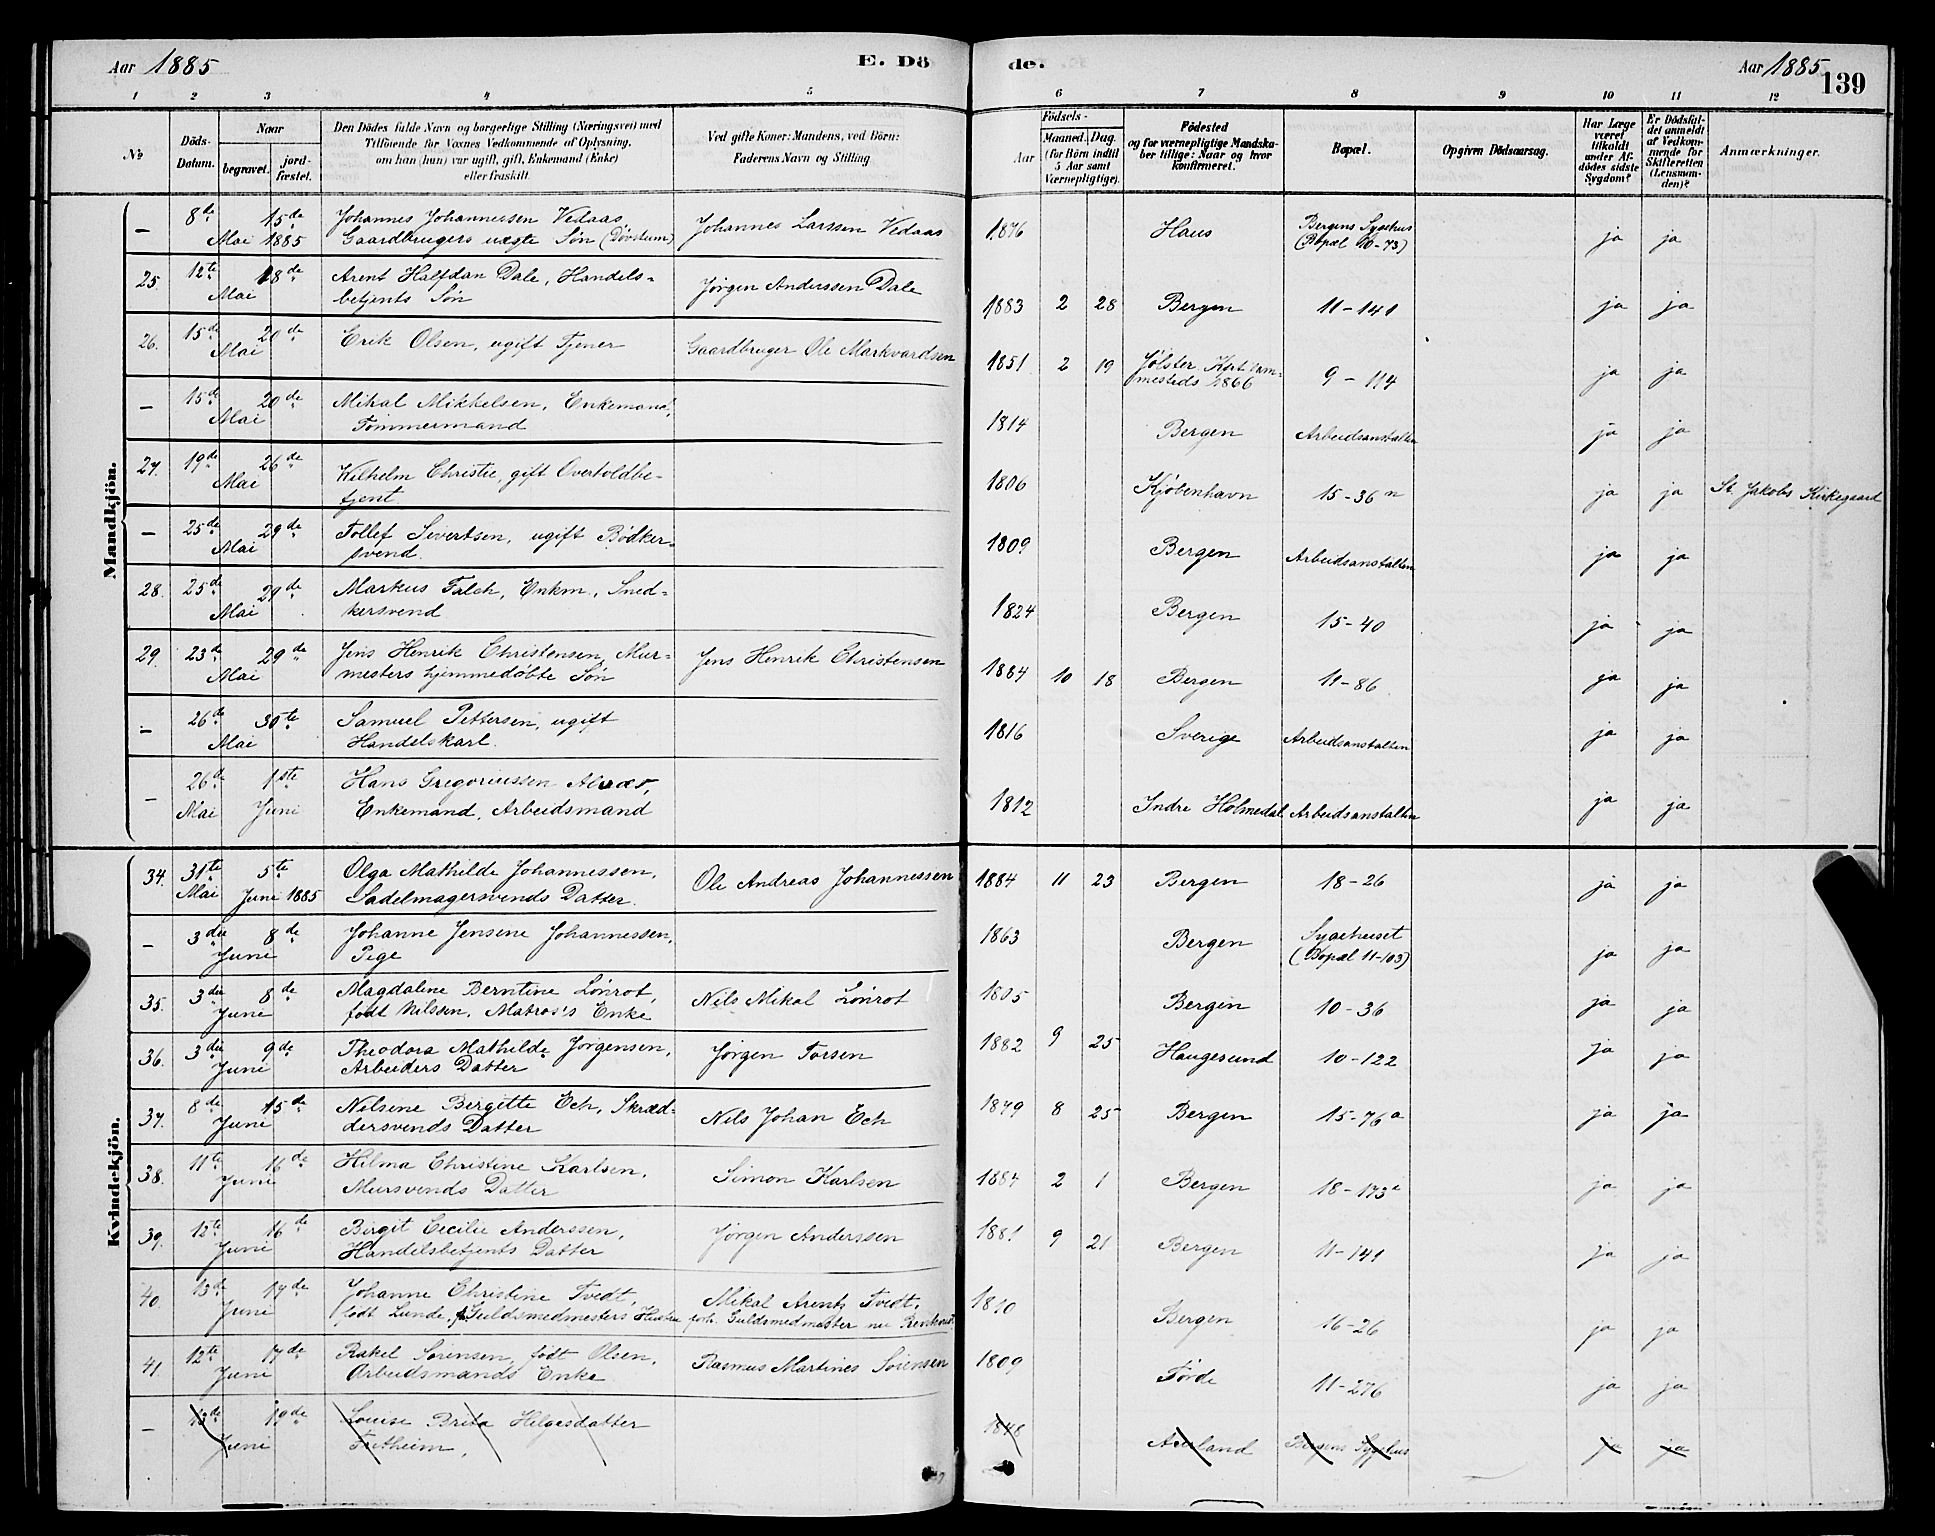 Aar 1885 E. Dö de. Aar 1885 139
1 2 3 4 5 6 7 8 9 10 11 12
No
Döds-Datum.
Naar
begravet.
jord-fæstet.
Den Dödes fulde Navn og borgerlige Stilling (Næringsvei) med
Tilföiende for Voxnes Vedkommende af Oplysning,
om han (hun) var ugift, gift, Enkemand (Enke)
eller fraskilt.
Ved gifte Koner: Mandens, ved Börn:
Faderens Navn og Stilling
Födsels-
Aar
Maaned. Dag.
(for Börn indtil
5 Aar samt
Værnepligtige).
Födested
og for værnepligtige Mandska-
ber tillige: Naar og hvor
konfirmeret.
Bopæl.
Opgiven Dödsaarsag.
Har Læge
været
tilkaldt
under Af-
dödes sidste
Sygdom?
Er Dödsfal-
det anmeldt
af Vedkom-
mende for
Skifteretten
(Lensman-
den)?
Anmærkninger.
Mandkjön.
— 8de 15de Johannes Johannessen Vedaas, Johannes Larssen Vedaas 1876 Haus Bergens Sygehus ja ja
Mai 1885 Gaardbrugers uægte Søn (Døvstum) (Bopæl 10-73)
25. 12te 18de Arent Halfdan Dale, Handels- Jørgen Anderssen Dale 1883 2 28 Bergen 11-141 ja ja
Mai betjents Søn
26. 15de 20de Erik Olsen, ugift Tjener Gaardbruger Ole Markvardsen 1851 2 19 Jølster Kft sam- 9-114 ja ja
Mai mesteds 1866
— 15de 20de Mikal Mikkelsen, Enkemand, 1814 Bergen Arbeidsanstalten ja ja
Mai Tømmermand
27. 19de 26de Wilhelm Christie, gift Overtoldbe- 1806 Kjøbenhavn 15-36n ja ja St. Jakobs Kirkegaard
Mai tjent
— 25de 29de Tollef Sivertsen, ugift Bødker- 1809 Bergen Arbeidsanstalten ja ja
Mai svend.
28. 25de 29de Markus Falch, Enkm., Sned- 1824 Bergen 15-40 ja ja
Mai kersvend
29. 23de 29de Jens Henrik Christensen, Mur- Jens Henrik Christensen 1884 10 18 Bergen 11-86 ja ja
Mai mesters hjemmedøbte Søn
— 26de 30te Samuel Pettersen, ugift 1816 Sverige Arbeidsanstalten ja ja
Mai Handelskarl.
— 26de 1ste Hans Gregoriussen 1812 Indre Holmedal Arbeidsanstalten ja ja
Mai Juni Enkemand, Arbeidsmand
Kvindekjön.
34. 31te 5te Olga Mathilde Johannessen, Ole Andreas Johannessen 1884 11 23 Bergen 18-26 ja ja
Mai Juni 1885 Sadelmagersvends Datter.
— 3die 8de Johanne Jensine Johannessen, 1863 Bergen Sygehuset ja ja
Juni Pige (Bopæl 11-103)
35. 3die 8de Magdaline Berntine Lönrot, Nils Mikal Lönrot 1805 Bergen 10-36 ja ja
Juni født Nilssen, Matros's Enke
36. 3die 9de Theodora Mathilde Jørgensen, Jørgen Torsen 1882 9 25 Haugesund 10-122 ja ja
Juni Arbeiders Datter
37. 8de 15de Nilsine Bergitte Ech, Skræd- Nils Johan Ech 1879 8 25 Bergen 15-76a ja ja
Juni dersvends Datter
38. 11te 16de Hilma Christine Karlsen, Simon Karlsen 1884 2 1 Bergen 18-173a ja ja
Juni Mursvends Datter
39. 12te 16de Birgit Cecilie Anderssen, Jørgen Anderssen 1881 9 21 Bergen 11-141 ja ja
Juni Handelsbetjents Datter
40. 13de 17de Johanne Christine Tvedt, Mikal Arentz Tvedt, 1810 Bergen 16-26 ja ja
Juni født Lunde, Guldsmedmesters Hustru forh. Guldsmedmester nu
41. 12te 17de Rakel Sørensen, født Olsen, Rasmus Martines Sørensen 1809 Førde 11-276 ja ja
Juni Arbeidsmands Enke
— 13de 19de Louise Brita Helgesdatter 1848 Aurland Bergens Sygehus ja ja
Juni Fretheim,